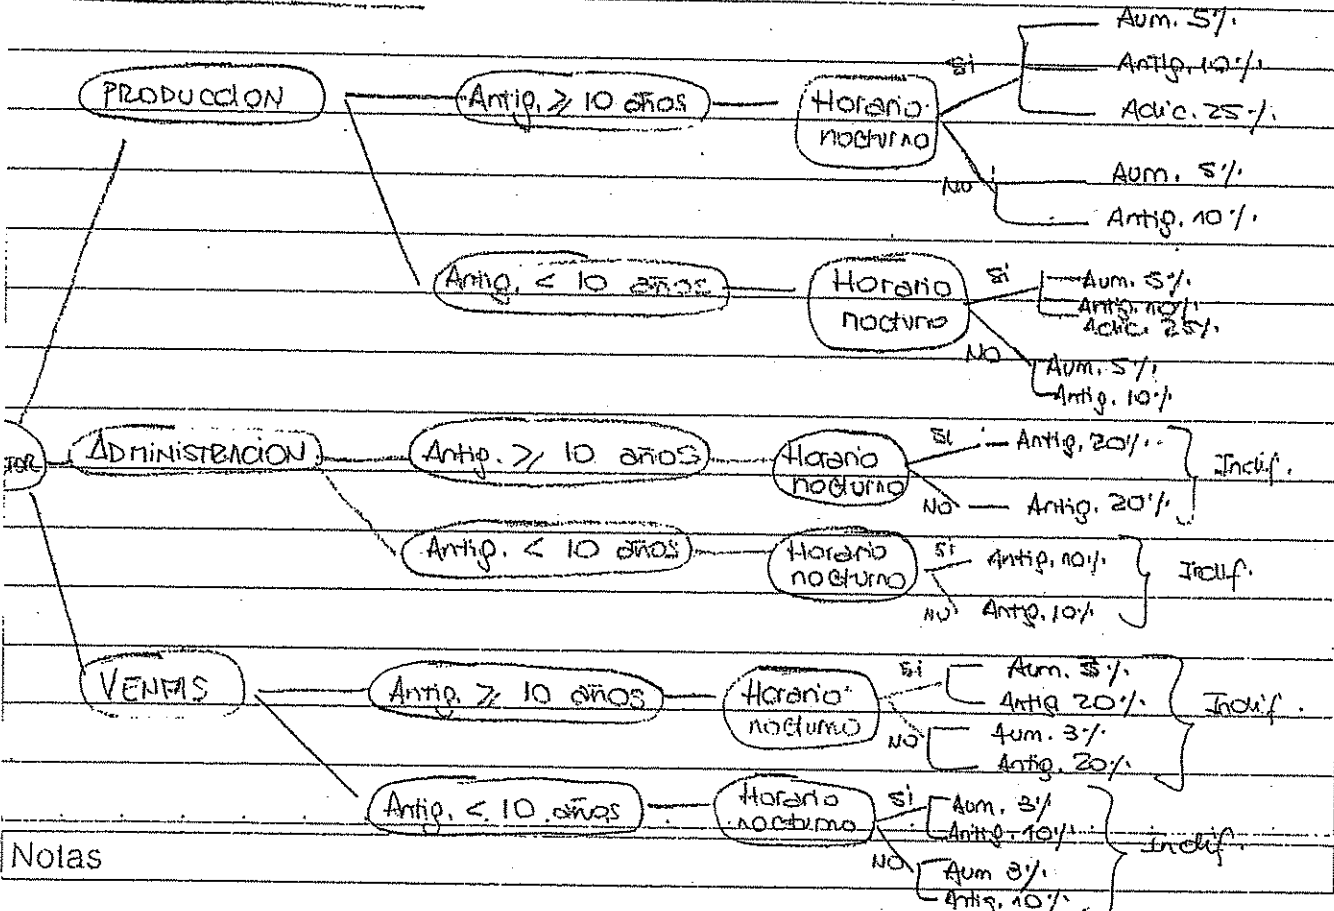 Aum. 5%.
PRODUCCION
Antig. ≥ 10 años
Horario
nocturno
Si
Antig. 10%.
Adic. 25%.
No
Aum. 5%.
Antig. 10%.
Antig. < 10 años
Horario
nocturno
Si
Aum. 5%.
Antig. 10%.
Adic. 25%.
NO
Aum. 5%.
Antig. 10%
TOR
ADMINISTRACION
Antig. ≥ 10 años
Horario
nocturno
Si
Antig. 20%.
NO
Antig. 20%.
Indif.
Antig. < 10 años
Horario
nocturno
Si
Antig. 10%.
NO
Antig. 10%
Indif.
VENTAS
Antig. ≥ 10 años
Horario
nocturno
Si
Aum. 3%.
Antig 20%.
NO
Aum. 3%.
Antig. 20%.
Indif.
Antig. < 10 años
Horario
nocturno
Si
Aum. 3%
Antig. 10%.
NO
Aum 3%.
Antig. 10%.
Indif.
Notas